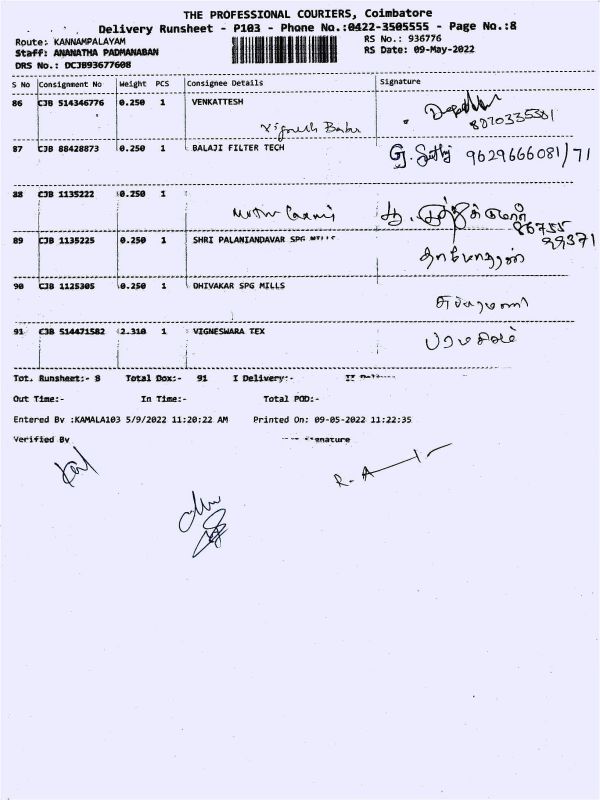 THE PROFESSIONAL COURIERS, Coimbatore
Delivery Runsheet - P103 - Phone No.:0422-3505555 - Page No.:8
Route: KANNAMPALAYAM
RS No.: 936776
Staff: ANANATHA PADMANABAN
RS Date: 09-May-2022
DRS No.: DCJB93677608
S No Consignment No Weight PCS Consignee Details Signature
86 CJB 514346776 0.250 1 VENKATTESH
Vignesh Babu 8870335381
87 CJB 88428873 0.250 1 BALAJI FILTER TECH
G. 9629666081/71
88 CJB 1135222 0.250 1
86755
99371
89 CJB 1135225 0.250 1 SHRI PALANIANDAVAR SPG MILLS
தாமோதரன்
90 CJB 1125305 0.250 1 DHIVAKAR SPG MILLS
சுப்ரமணி
91 CJB 514471582 2.310 1 VIGNESWARA TEX
பரமசிவம்
Tot. Runsheet:- 8 Total Dox:- 91 I Delivery:-
Out Time:- In Time:- Total POD:-
Entered By :KAMALA103 5/9/2022 11:20:22 AM Printed On: 09-05-2022 11:22:35
Verified By
R. A